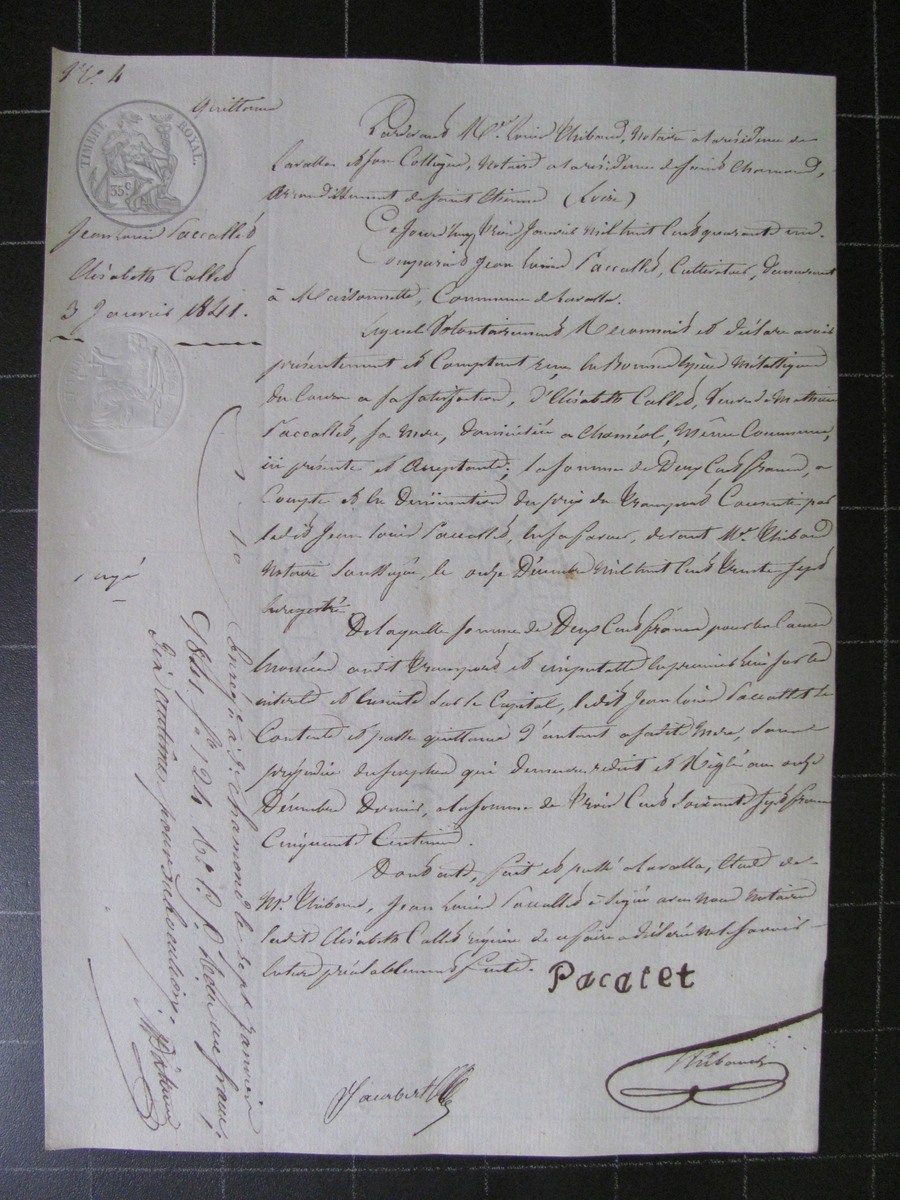 N.° 4
Quittance
TIMBRE ROYAL.
35 c
Jean Louis Paccallet
Elisabeth Callet
3 Janvier 1841.
Pardevant Me. Louis Thibaud, Notaire a la résidence de
Lavalla et son Collègue, Notaire a la résidence de Saint Chamond,
Arrondissement de Saint Etienne (Loire)
Ce Jourd'huy trois Janvier mil huit Cent quarante un.
Comparait Jean Louis Paccallet, Cultivateur, demeurant
à Maisonnette, Commune de Lavalla.
Lequel Volontairement Reconnait et déclare avoir
présentement et Comptant Reçu en bonnes espèces Métalliques
du Cours a sa satisfaction, d'Elisabeth Callet, Veuve de Mathieu
Paccallet, sa Mere, domiciliée a Chomiol, Même Commune,
ici présente et Acceptante; la somme de Deux Cent francs, a
Compte et en Diminution du prix du transport Consenti par
ledit Jean Louis Paccallet, en sa faveur, devant Me. Thibaud
Notaire Soussigné, le onze Décembre mil huit Cent trente sept
Enregistré.
De laquelle somme de Deux Cent francs pour la Cause
énoncée audit transport et imputable en premier lieu sur les
intérêts et Ensuite sur le Capital, ledit Jean Louis Paccallet Se
Contente et passe quittance d'autant a sadite Mere, sans
préjudice du surplus qui demeure réduit et Réglé au onze
Décembre Dernier, a la somme de trois Cent Soixante Sept francs
Cinquante Centimes.
Dont acte, fait et passé a Lavalla, Etude de
Me. Thibaud, Jean Louis Paccallet a Signé avec Nous Notaires
ladite Elisabeth Callet requise de ce faire a déclaré ne le savoir
lecture préalablement faite.
Pacalet
Jaubert
Thibaud
1 10
Enregé à St. Chamond le sept janvier
1841 f° 124 R° c. 5 Reçu un franc,
dix centimes pour subvention.